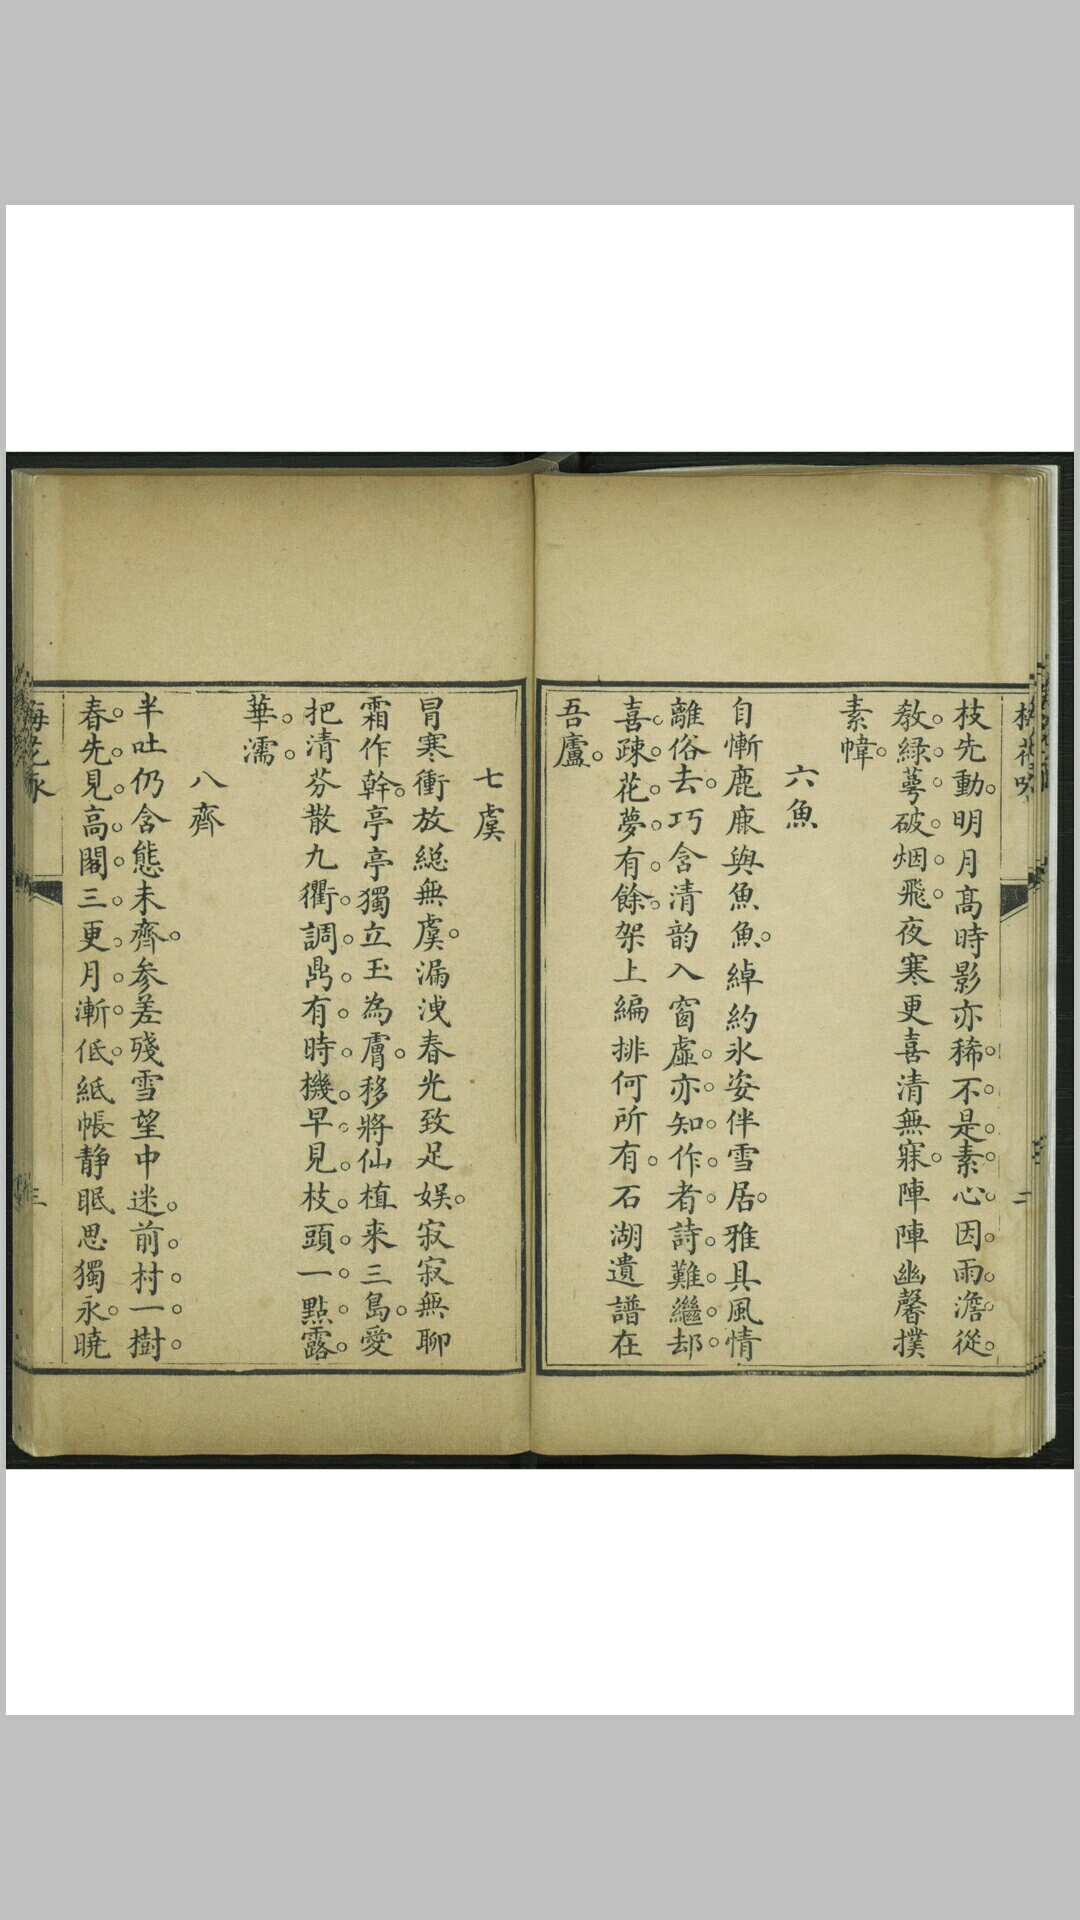 枝先動。明月高時影亦稀。不。是。素。心。因。雨。澹。從。
教。綠。萼。破。烟。飛。夜寒更喜清無寐。陣陣幽馨撲
素幃。
六魚
自慚鹿麋與魚魚。綽約氷姿伴雪居。雅具風情
離俗去。巧含清韵入窗虛。亦。知。作。者。詩。難。繼。却。
喜。疎。花。夢。有。餘。架上編排何所有。石湖遺譜在
吾廬。
七虞
冒寒衝放縂無虞。漏洩春光致足娛。寂寂無聊
霜作幹。亭亭獨立玉為膚。移將仙植来三島。愛
把清芬散九衢。調。鼎。有。時。機。早。見。枝。頭。一。點。露。
華。濡。
八齊
半吐仍含態未齊。參差殘雪望中迷。前。村。一。樹。
春。先。見。高。閣。三。更。月。漸。低。紙帳静眠思獨永。曉
二
三